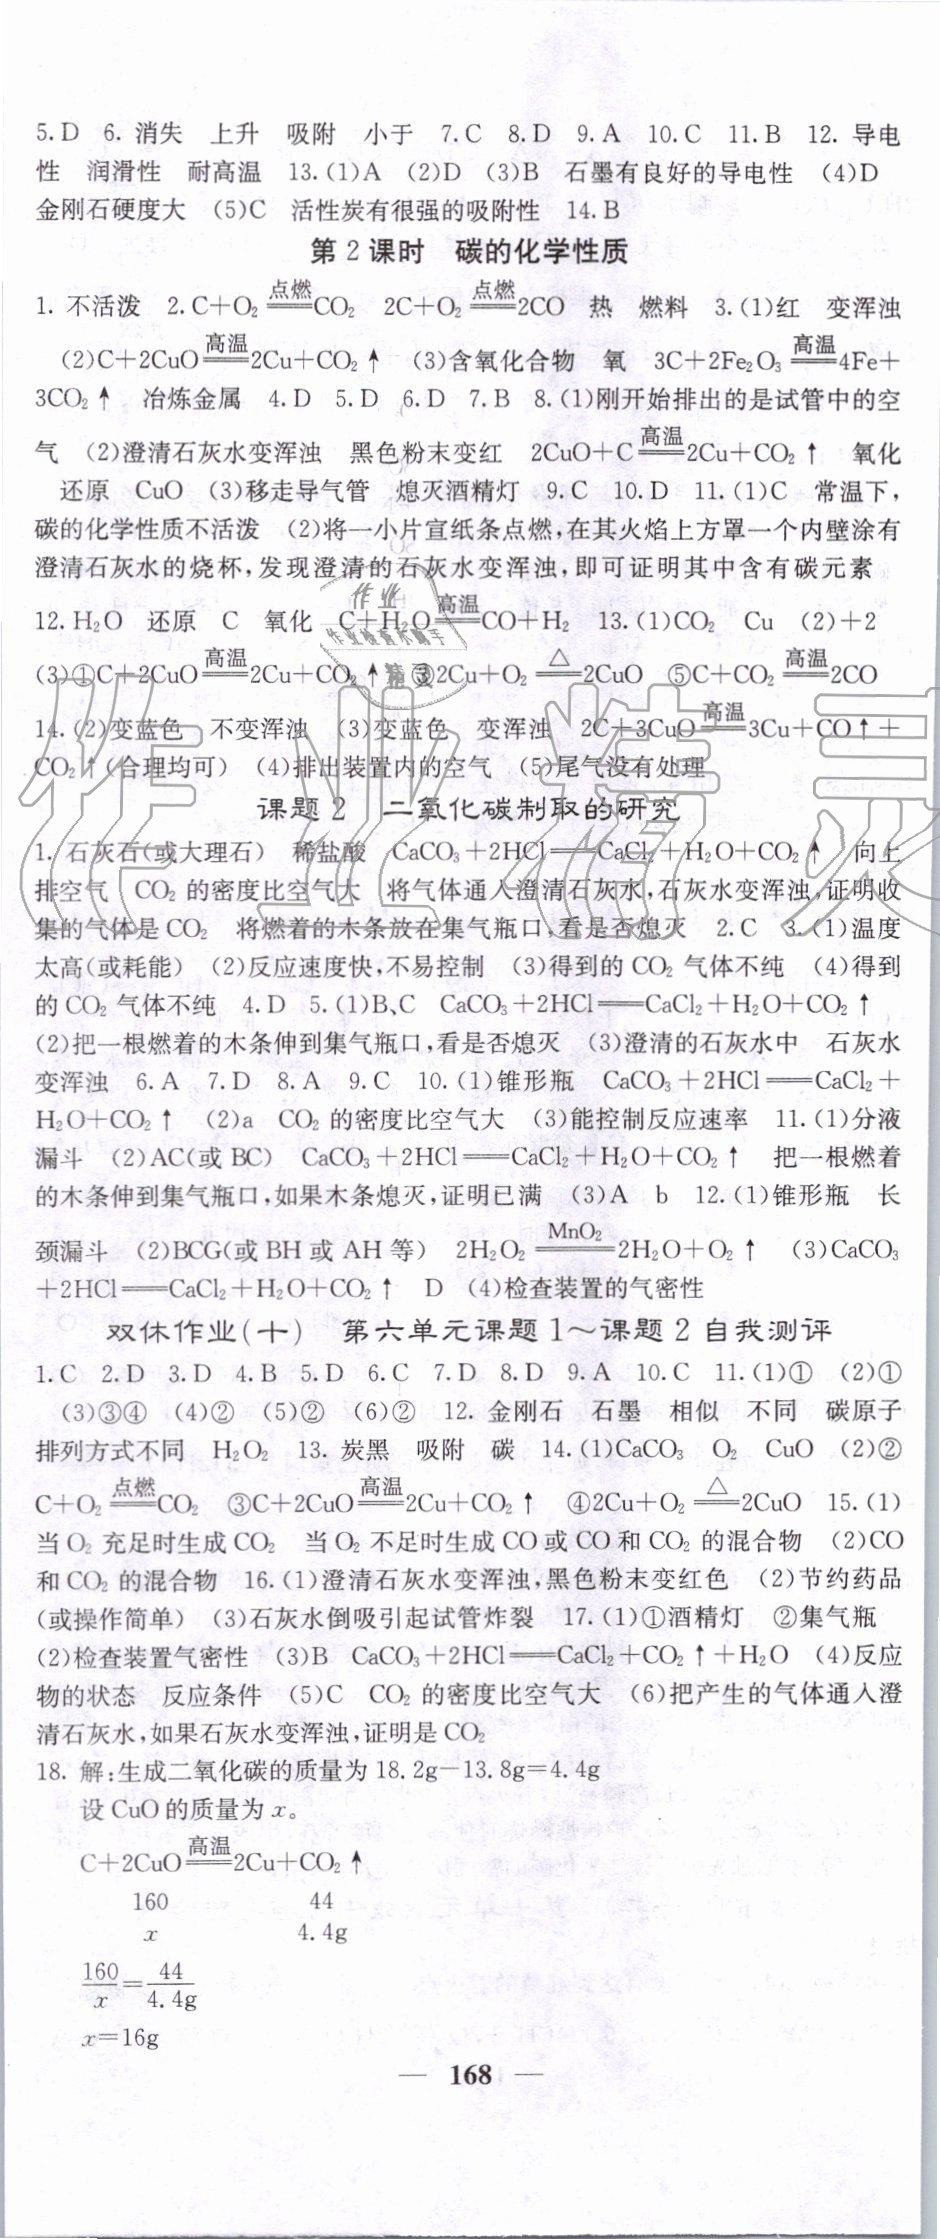 5.D 6. 消失 上升 吸附 小于 7.C 8.D 9.A 10.C 11.B 12. 导电
性 润滑性 耐高温 13.(1)A (2)D (3)B 石墨有良好的导电性 (4)D
金刚石硬度大 (5)C 活性炭有很强的吸附性 14.B
第2课时 碳的化学性质
1. 不活泼 2.C+O₂ 点燃══ CO₂ 2C+O₂ 点燃══ 2CO 热 燃料 3.(1)红 变浑浊
(2)C+2CuO 高温══ 2Cu+CO₂↑ (3)含氧化合物 氧 3C+2Fe₂O₃ 高温══ 4Fe+
3CO₂↑ 冶炼金属 4.D 5.D 6.D 7.B 8.(1)刚开始排出的是试管中的空
气 (2)澄清石灰水变浑浊 黑色粉末变红 2CuO+C 高温══ 2Cu+CO₂↑ 氧化
还原 CuO (3)移走导气管 熄灭酒精灯 9.C 10.D 11.(1)C 常温下,
碳的化学性质不活泼 (2)将一小片宣纸条点燃,在其火焰上方罩一个内壁涂有
澄清石灰水的烧杯,发现澄清的石灰水变浑浊,即可证明其中含有碳元素
12.H₂O 还原 C 氧化 C+H₂O 高温══ CO+H₂ 13.(1)CO₂ Cu (2)+2
(3)①C+2CuO 高温══ 2Cu+CO₂↑ ③2Cu+O₂ △══ 2CuO ⑤C+CO₂ 高温══ 2CO
14.(2)变蓝色 不变浑浊 (3)变蓝色 变浑浊 2C+3CuO 高温══ 3Cu+CO↑+
CO₂↑(合理均可) (4)排出装置内的空气 (5)尾气没有处理
课题2 二氧化碳制取的研究
1. 石灰石(或大理石) 稀盐酸 CaCO₃+2HCl══CaCl₂+H₂O+CO₂↑ 向上
排空气 CO₂ 的密度比空气大 将气体通入澄清石灰水,石灰水变浑浊,证明收
集的气体是CO₂ 将燃着的木条放在集气瓶口,看是否熄灭 2.C 3.(1)温度
太高(或耗能) (2)反应速度快,不易控制 (3)得到的CO₂ 气体不纯 (4)得到
的CO₂ 气体不纯 4.D 5.(1)B、C CaCO₃+2HCl══CaCl₂+H₂O+CO₂↑
(2)把一根燃着的木条伸到集气瓶口,看是否熄灭 (3)澄清的石灰水中 石灰水
变浑浊 6.A 7.D 8.A 9.C 10.(1)锥形瓶 CaCO₃+2HCl══CaCl₂+
H₂O+CO₂↑ (2)a CO₂ 的密度比空气大 (3)能控制反应速率 11.(1)分液
漏斗 (2)AC(或BC) CaCO₃+2HCl══CaCl₂+H₂O+CO₂↑ 把一根燃着
的木条伸到集气瓶口,如果木条熄灭,证明已满 (3)A b 12.(1)锥形瓶 长
颈漏斗 (2)BCG(或BH或 AH等) 2H₂O₂ MnO₂══ 2H₂O+O₂↑ (3)CaCO₃
+2HCl══CaCl₂+H₂O+CO₂↑ D (4)检查装置的气密性
双休作业(十) 第六单元课题1～课题2自我测评
1.C 2.D 3.D 4.B 5.D 6.C 7.D 8.D 9.A 10.C 11.(1)① (2)①
(3)③④ (4)② (5)② (6)② 12. 金刚石 石墨 相似 不同 碳原子
排列方式不同 H₂O₂ 13. 炭黑 吸附 碳 14.(1)CaCO₃ O₂ CuO (2)②
C+O₂ 点燃══ CO₂ ③C+2CuO 高温══ 2Cu+CO₂↑ ④2Cu+O₂ △══ 2CuO 15.(1)
当O₂ 充足时生成CO₂ 当O₂ 不足时生成CO或CO和CO₂ 的混合物 (2)CO
和CO₂ 的混合物 16.(1)澄清石灰水变浑浊,黑色粉末变红色 (2)节约药品
(或操作简单) (3)石灰水倒吸引起试管炸裂 17.(1)①酒精灯 ②集气瓶
(2)检查装置气密性 (3)B CaCO₃+2HCl══CaCl₂+CO₂↑+H₂O (4)反应
物的状态 反应条件 (5)C CO₂ 的密度比空气大 (6)把产生的气体通入澄
清石灰水,如果石灰水变浑浊,证明是CO₂
18. 解:生成二氧化碳的质量为18.2g-13.8g=4.4g
设CuO的质量为x。
C+2CuO 高温══ 2Cu+CO₂↑
160 44
x 4.4g
160/x=44/4.4g
x=16g
— 168 —
作业精灵
作业
作业检查小助手
精灵